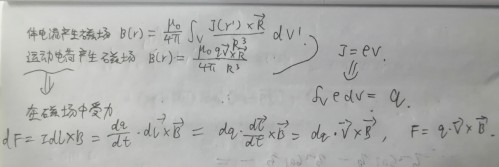 体电流产生磁场 B(r) = μ₀/4π ∫_V J(r')×R⃗/R³ dV'
运动电荷产生磁场 B(r) = μ₀/4π qv⃗×R⃗/R³
J = ρv.
∫_V ρdv = q.
在磁场中受力
dF = Idl×B = dq/dt · dl⃗×B⃗ = dq · dl⃗/dt ×B⃗ = dq · v⃗×B⃗, F = q·v⃗×B⃗.